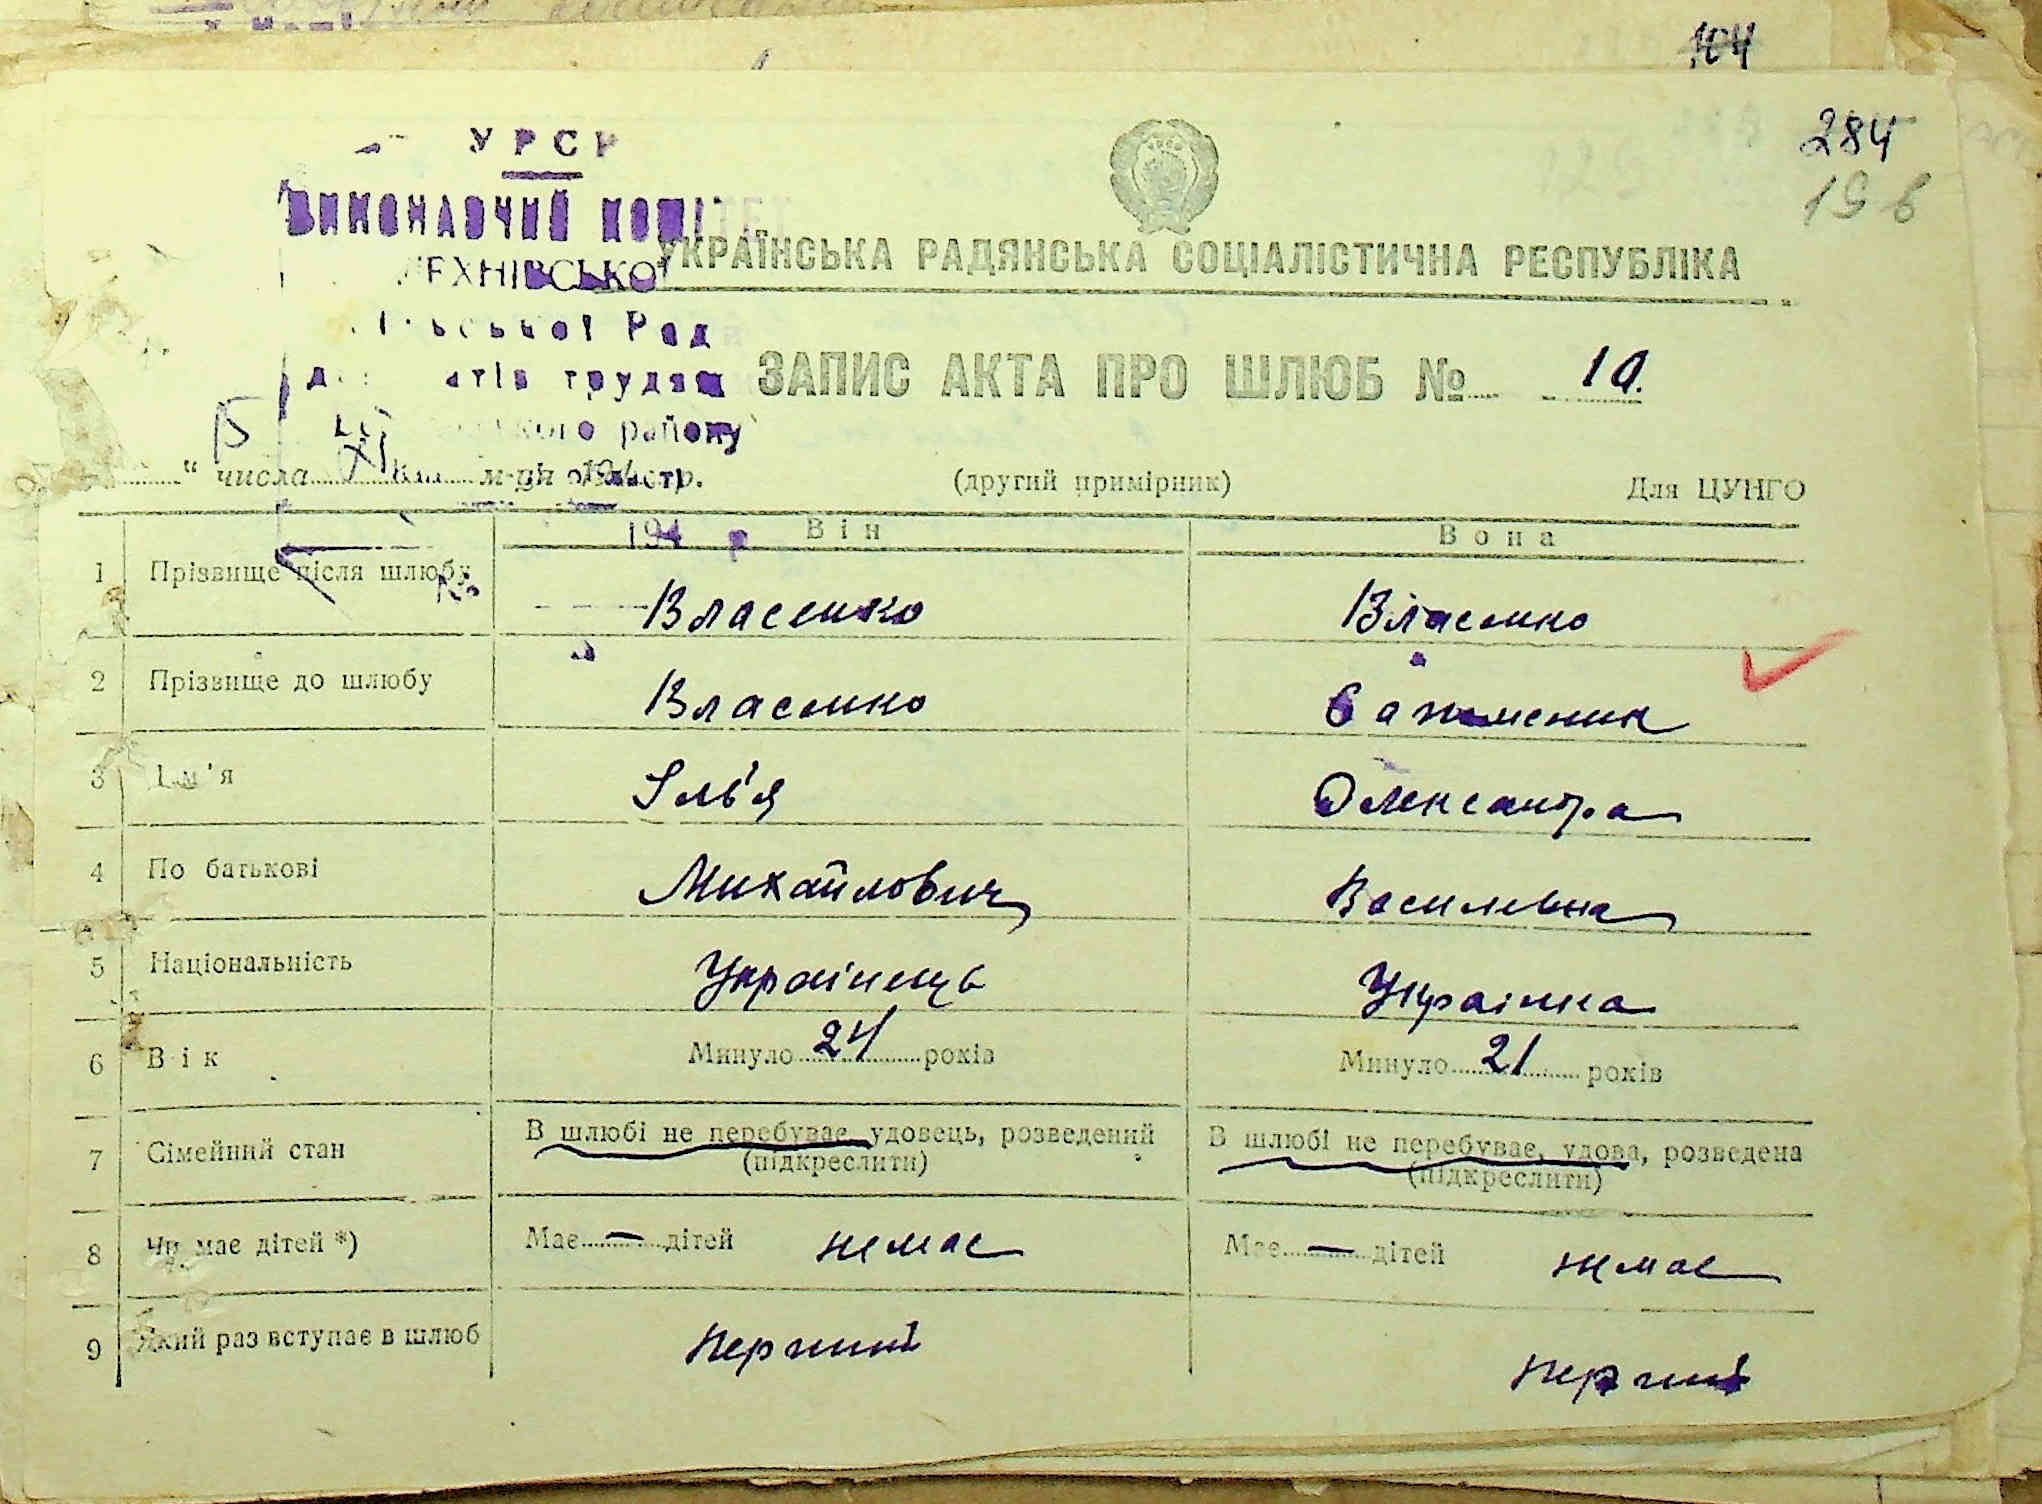 104
284
196
УРСР
ВИКОНАВЧИЙ КОМІТЕТ
УКРАЇНСЬКА РАДЯНСЬКА СОЦІАЛІСТИЧНА РЕСПУБЛІКА
Рад
ЗАПИС АКТА ПРО ШЛЮБ № 10.
трудящ
району
15
“ числа XI м-ця 194 р.
(другий примірник)
Для ЦУНГО
194 р
Він
Вона
1 Прізвище після шлюбу Власенко Власенко
2 Прізвище до шлюбу Власенко
3 Ім'я Ілья Олександра
4 По батькові Михайлович Василевна
5 Національність Українець Українка
6 Вік Минуло 24 років Минуло 21 років
7 Сімейний стан В шлюбі не перебуває, удовець, розведений (підкреслити) В шлюбі не перебуває, удова, розведена (підкреслити)
8 Чи має дітей *) Має — дітей немає Має — дітей немає
9 Який раз вступає в шлюб Перший перший